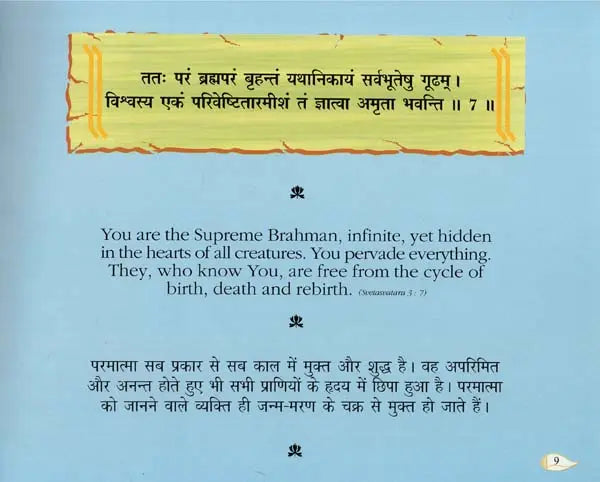 ततः परं ब्रह्मपरं बृहन्तं यथानिकायं सर्वभूतेषु गूढम् ।
विश्वस्य एकं परिवेष्टितारमीशं तं ज्ञात्वा अमृता भवन्ति ॥ 7 ॥
You are the Supreme Brahman, infinite, yet hidden
in the hearts of all creatures. You pervade everything.
They, who know You, are free from the cycle of
birth, death and rebirth. (Svetasvatara 3 : 7)
परमात्मा सब प्रकार से सब काल में मुक्त और शुद्ध है। वह अपरिमित
और अनन्त होते हुए भी सभी प्राणियों के हृदय में छिपा हुआ है। परमात्मा
को जानने वाले व्यक्ति ही जन्म-मरण के चक्र से मुक्त हो जाते हैं।
9